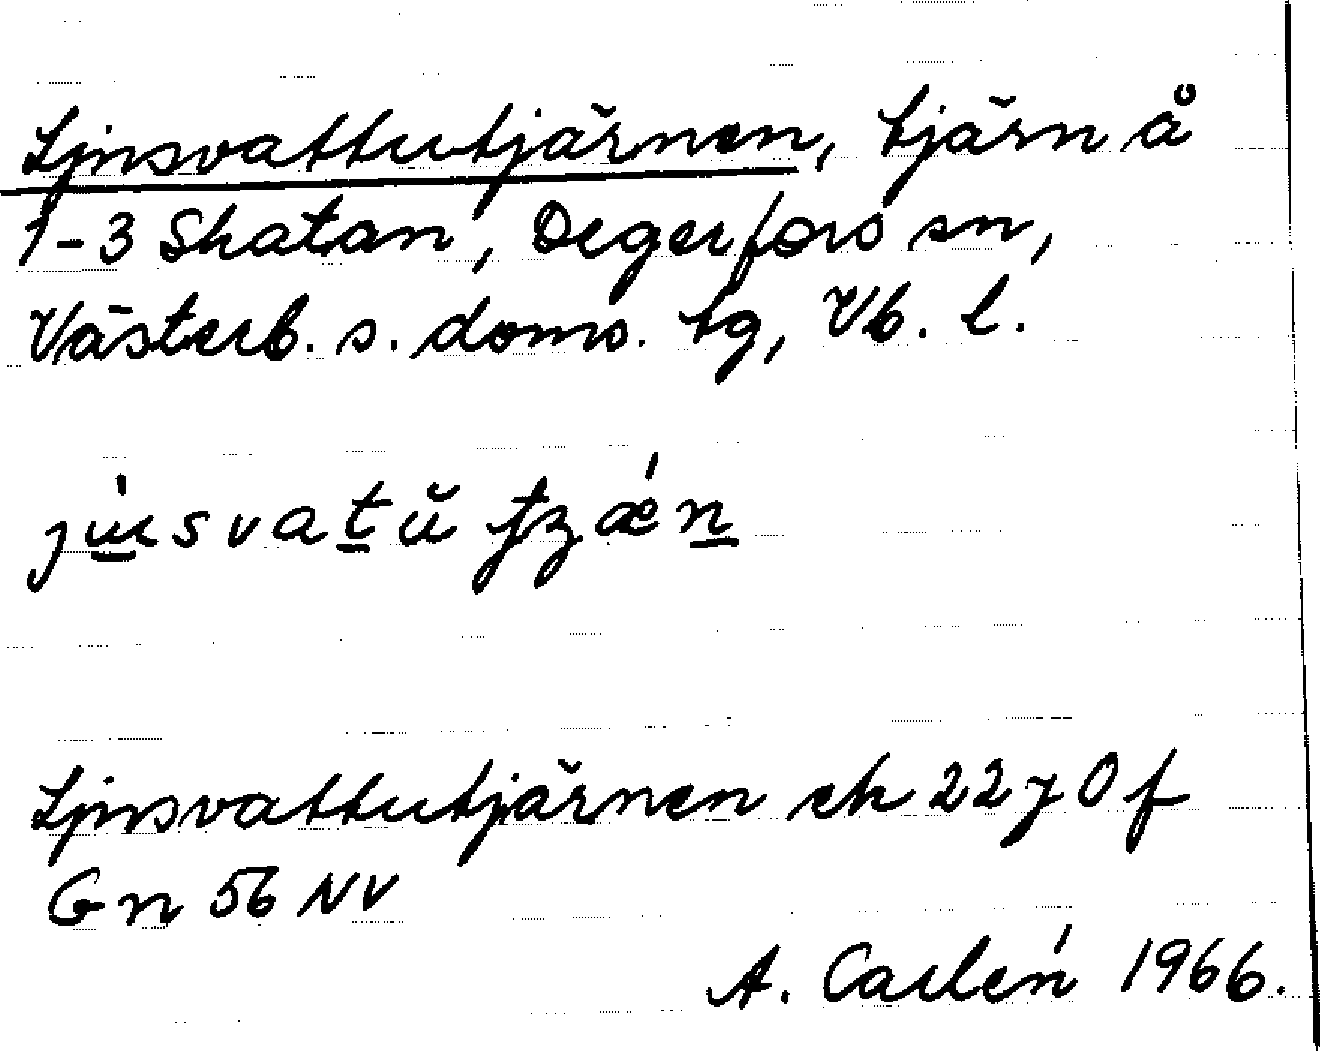 Ljusvattutjärnen, tjärn å
1-3 Skatan, Degerfors sn,
Västerb. s. doms. tg, Vb. l.
Ljusvattutjärnen ek 22 7 0 f
Gn 56 NV
A. Carlén 1966.